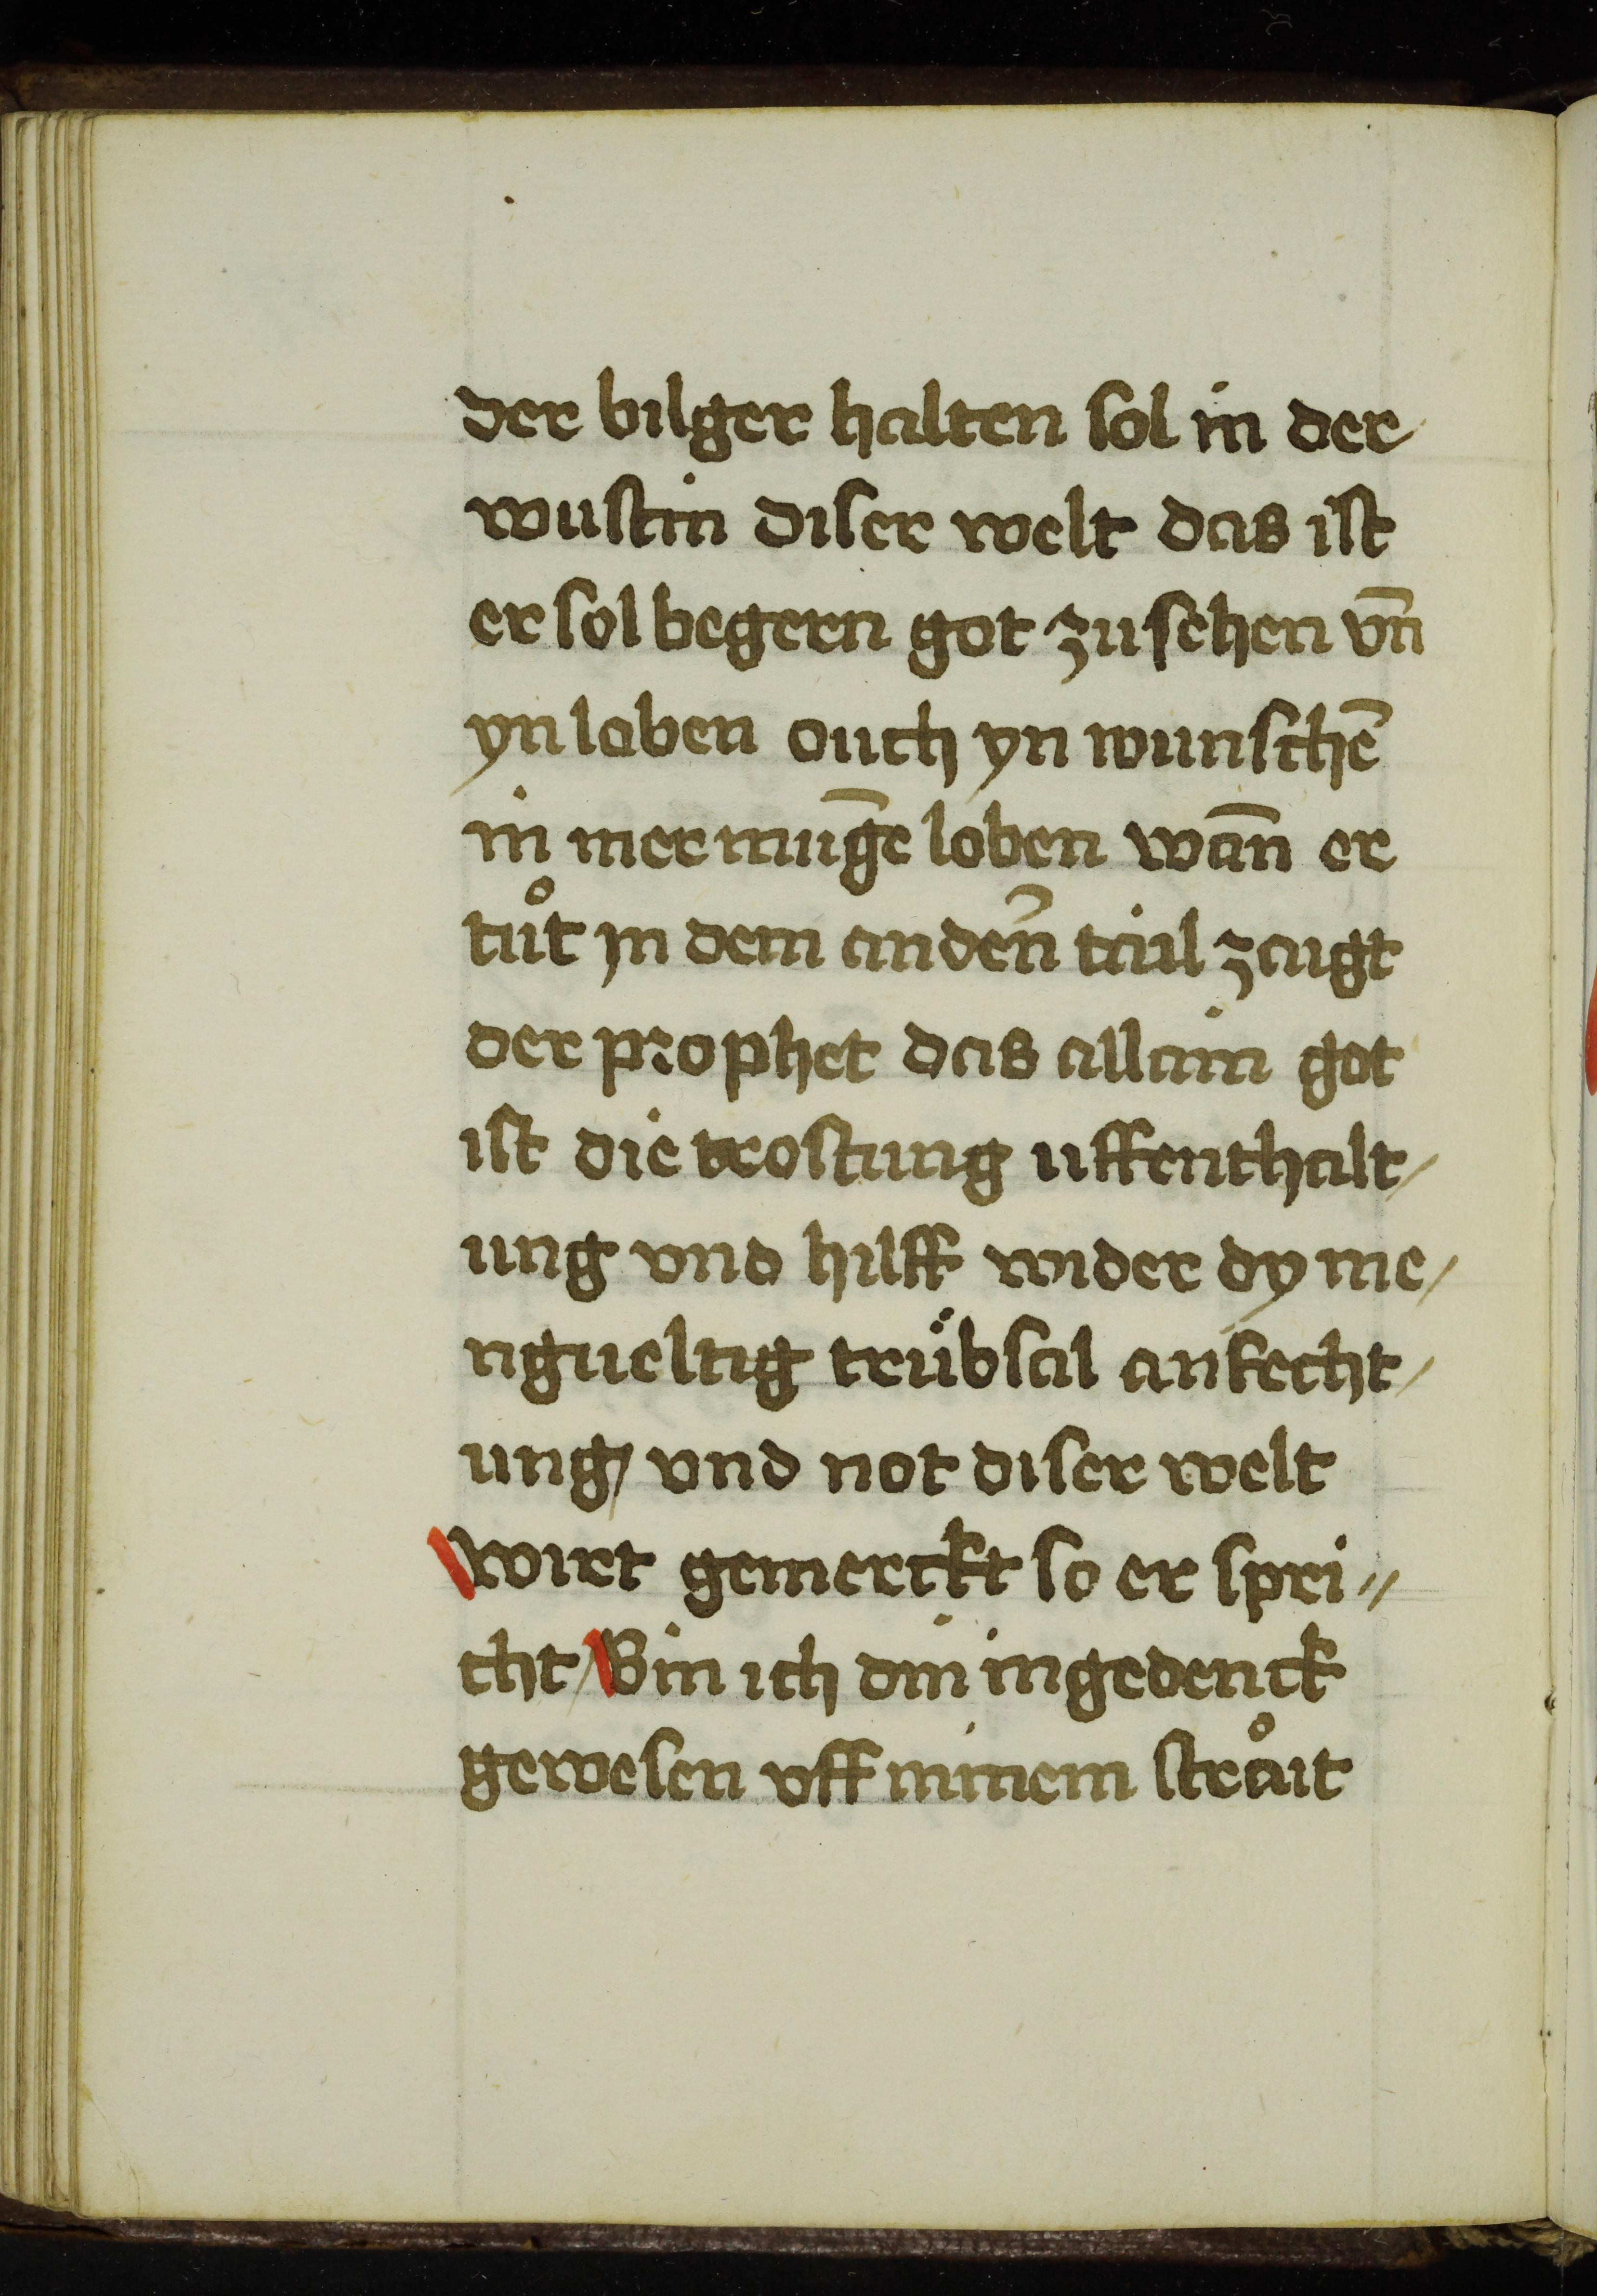 der bilger halten sol in der
wustin diser welt das ist
er sol begern got zu sehen vn̄
yn loben ouch yn wunschē
in mer mugē loben wān er
tuͦt jn dem andeͬn tail zaigt
der prophet das allain got
ist die trostung uffenthalt/
ung vnd hilff wider dy me/
ngueltig truͤbsal anfecht/
ung/ vnd not diser welt
wirt gemerckt so er spri//
cht/ Bin ich din ingedenck
gewesen vff minem straͦit